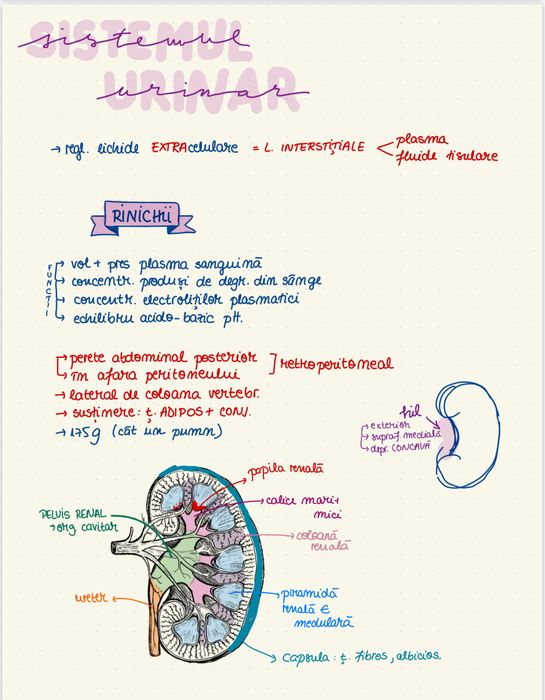 SISTEMUL
sistemul
URINAR
urinar
→ regl. lichide EXTRAcelulare = L. INTERSTIȚIALE < plasma
fluide tisulare
RINICHII
FUNCȚII
→ vol + pres plasma sanguină
→ concentr. produși de degr. din sânge
→ concentr. electroliților plasmatici
→ echilibru acido-bazic pH.
→ perete abdominal posterior ] retroperitoneal
→ în afara peritoneului
→ lateral de coloana vertebr.
→ susținere: ț. ADIPOS + CONJ.
→ 175g (cât un pumn)
hil
→ exterior
→ supraf. medială
→ depr. CONCAVĂ
papila renală
calice mari+
mici
PELVIS RENAL
→ org cavitar
coloană
renală
ureter
piramidă
renală ∈
medulară
Capsula: ț. fibros, albicios.